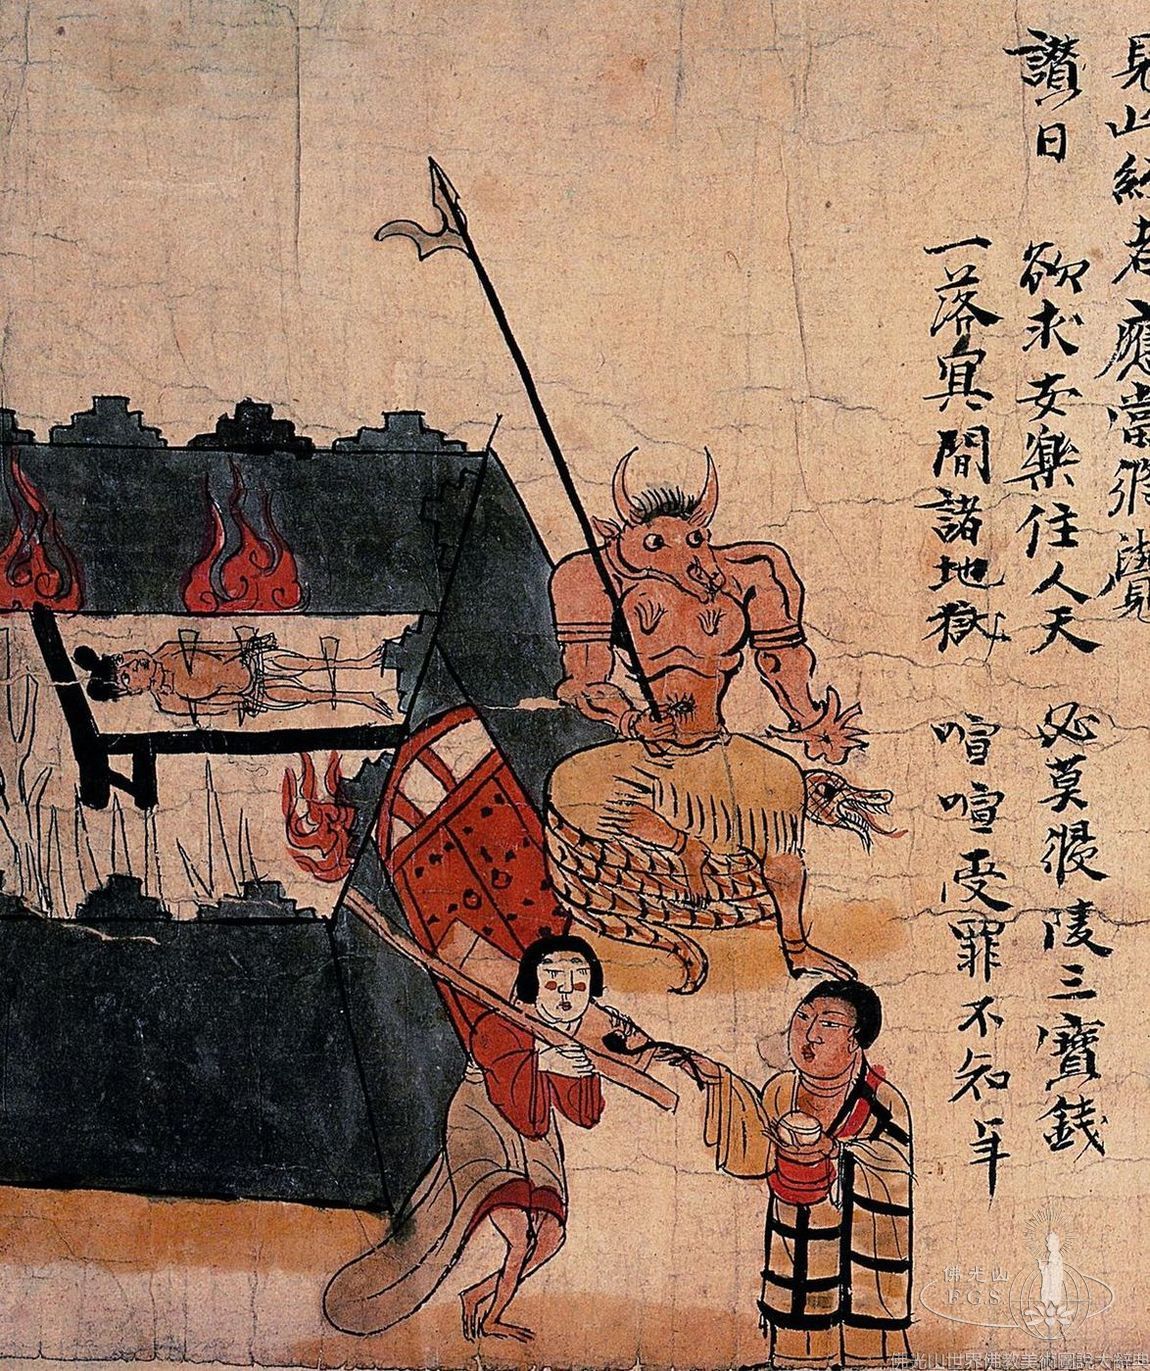 見山經者應當覺
讚曰 欲求安樂住人天 必莫侵陵三寶錢
一落冥間諸地獄 喧喧受罪不知年
佛光山
F.G.S.
佛光山世界佛教美術圖說大辭典